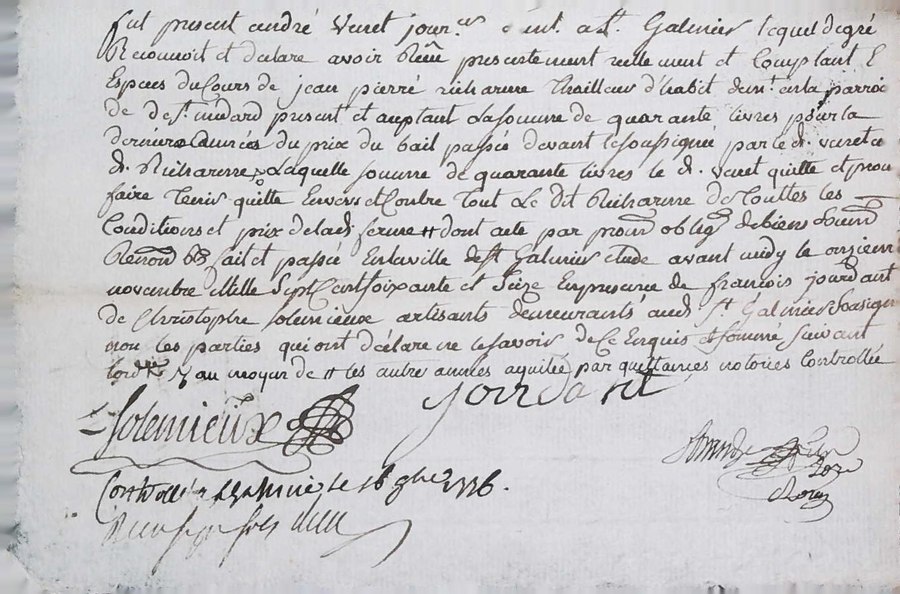 fut present andré Varet jour.er demt. a St. Galmier lequel de gré
Reconnoit et declare avoir Reçu presentement reellement et Comptant E
Especes du Cours de jean pierre Richarme thailleur d'habit demt. en la parroi
de de St. médard present et aceptant La somme de quarante livres pour la
derniere année du prix du bail passée devant le soussigné par led. varet a
d. Richarme, Laquelle somme de quarante livres le d. varet quitte et prom
faire tenir quitte Envers et Contre Tout Le dit Richarme de touttes les
Conditions et prix de lad. ferme # dont acte par prom. oblig. de biens soum.
Renon. fait et passée En la ville de St. Galmier etude avant midy le onziem
novembre Mille Sept Cent soixante et Seize En presence de françois jourdant
de Christophe solemieux artisants demeurants aud. St. Galmier soussign
non les parties qui ont declaré ne le savoir de Ce Enquis et sommé suivant
lord. # au moyen de # les autre années aquitée par quittances notoires Controllée
Solemieux jourdant
Controllé a St Galmier le 16 9bre 1776.